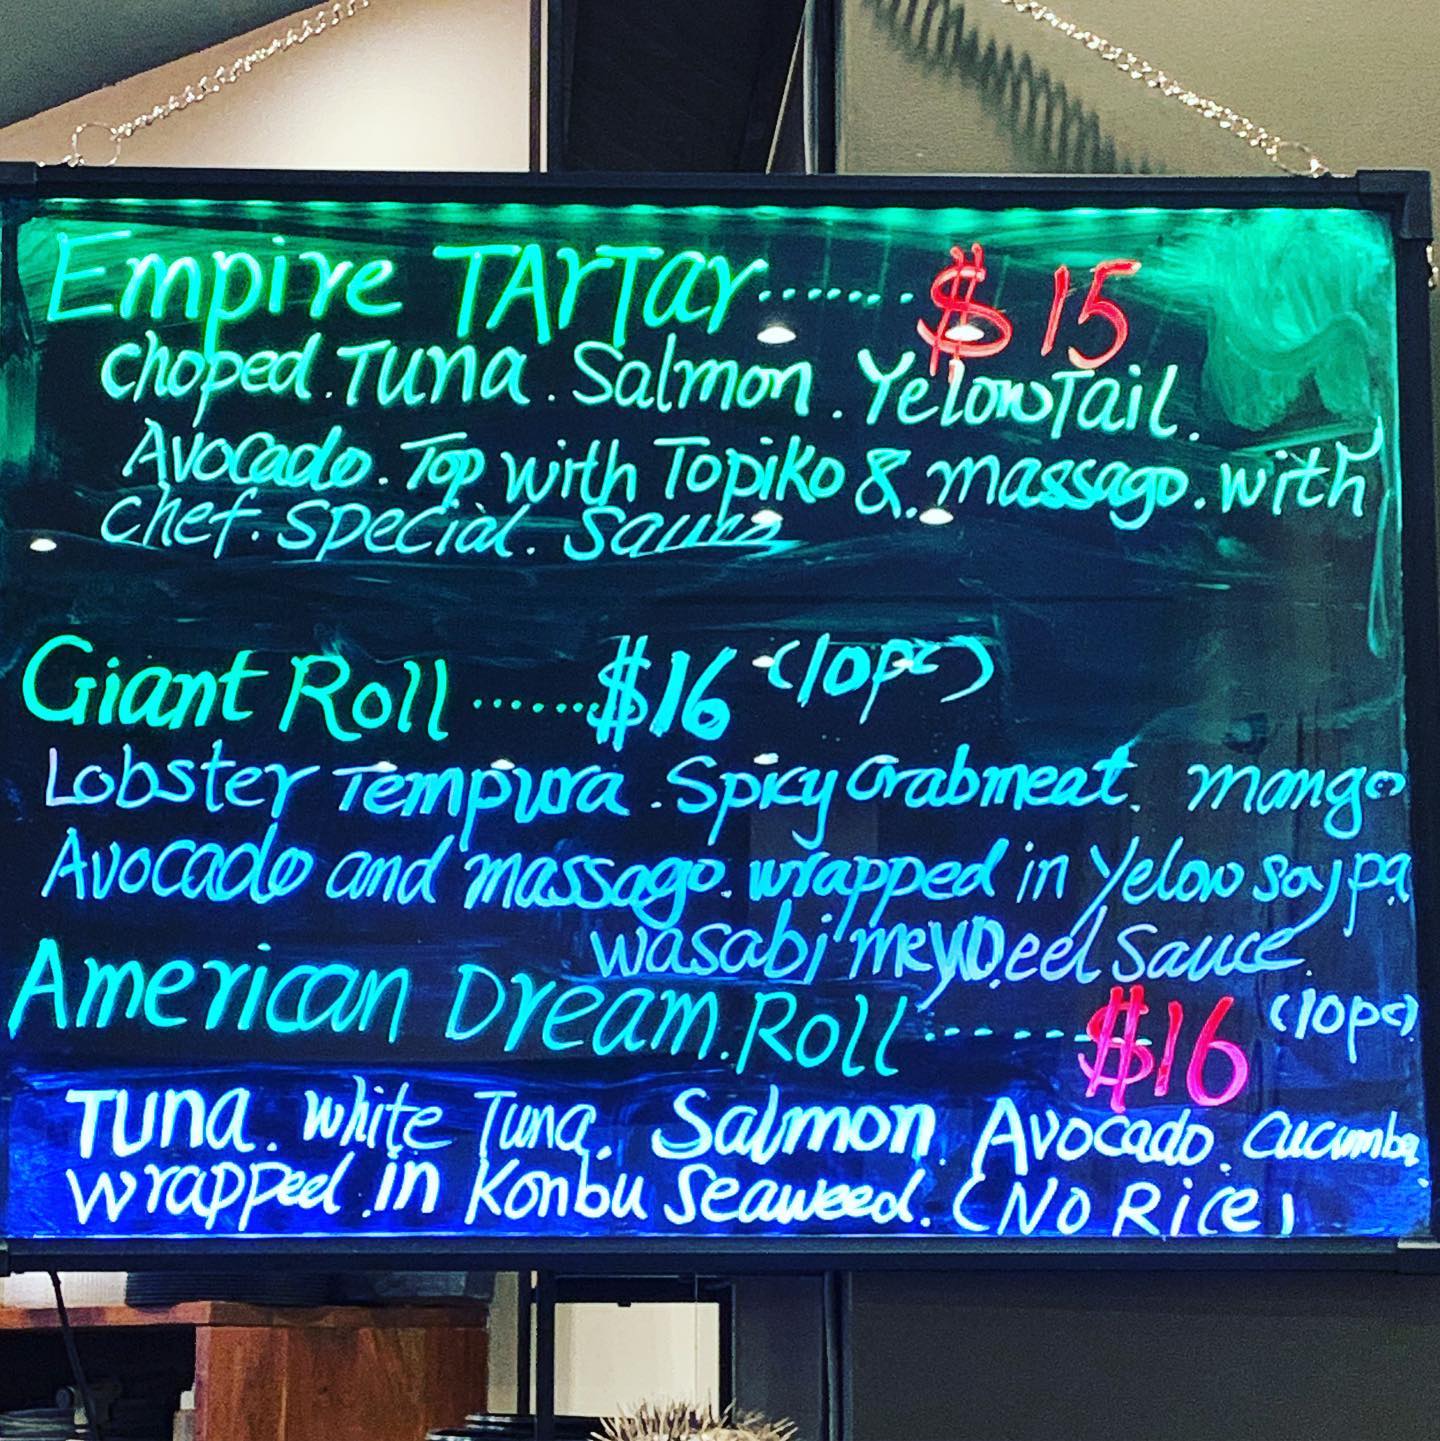 Empire TArTar....... $15
choped. Tuna. Salmon. YelowTail.
Avocado. Top with Topiko & massago. with
chef. special. Sauce
Giant Roll ...... $16 (10pc)
Lobster Tempura. Spicy Crabmeat. mango
Avocado and massago. wrapped in yelow soy pa
wasabi mayo. eel sauce.
American Dream. Roll ...... $16 (10pc)
Tuna. white Tuna. Salmon. Avocado. cucumber
wrapped in Konbu Seaweed. (NO Rice)